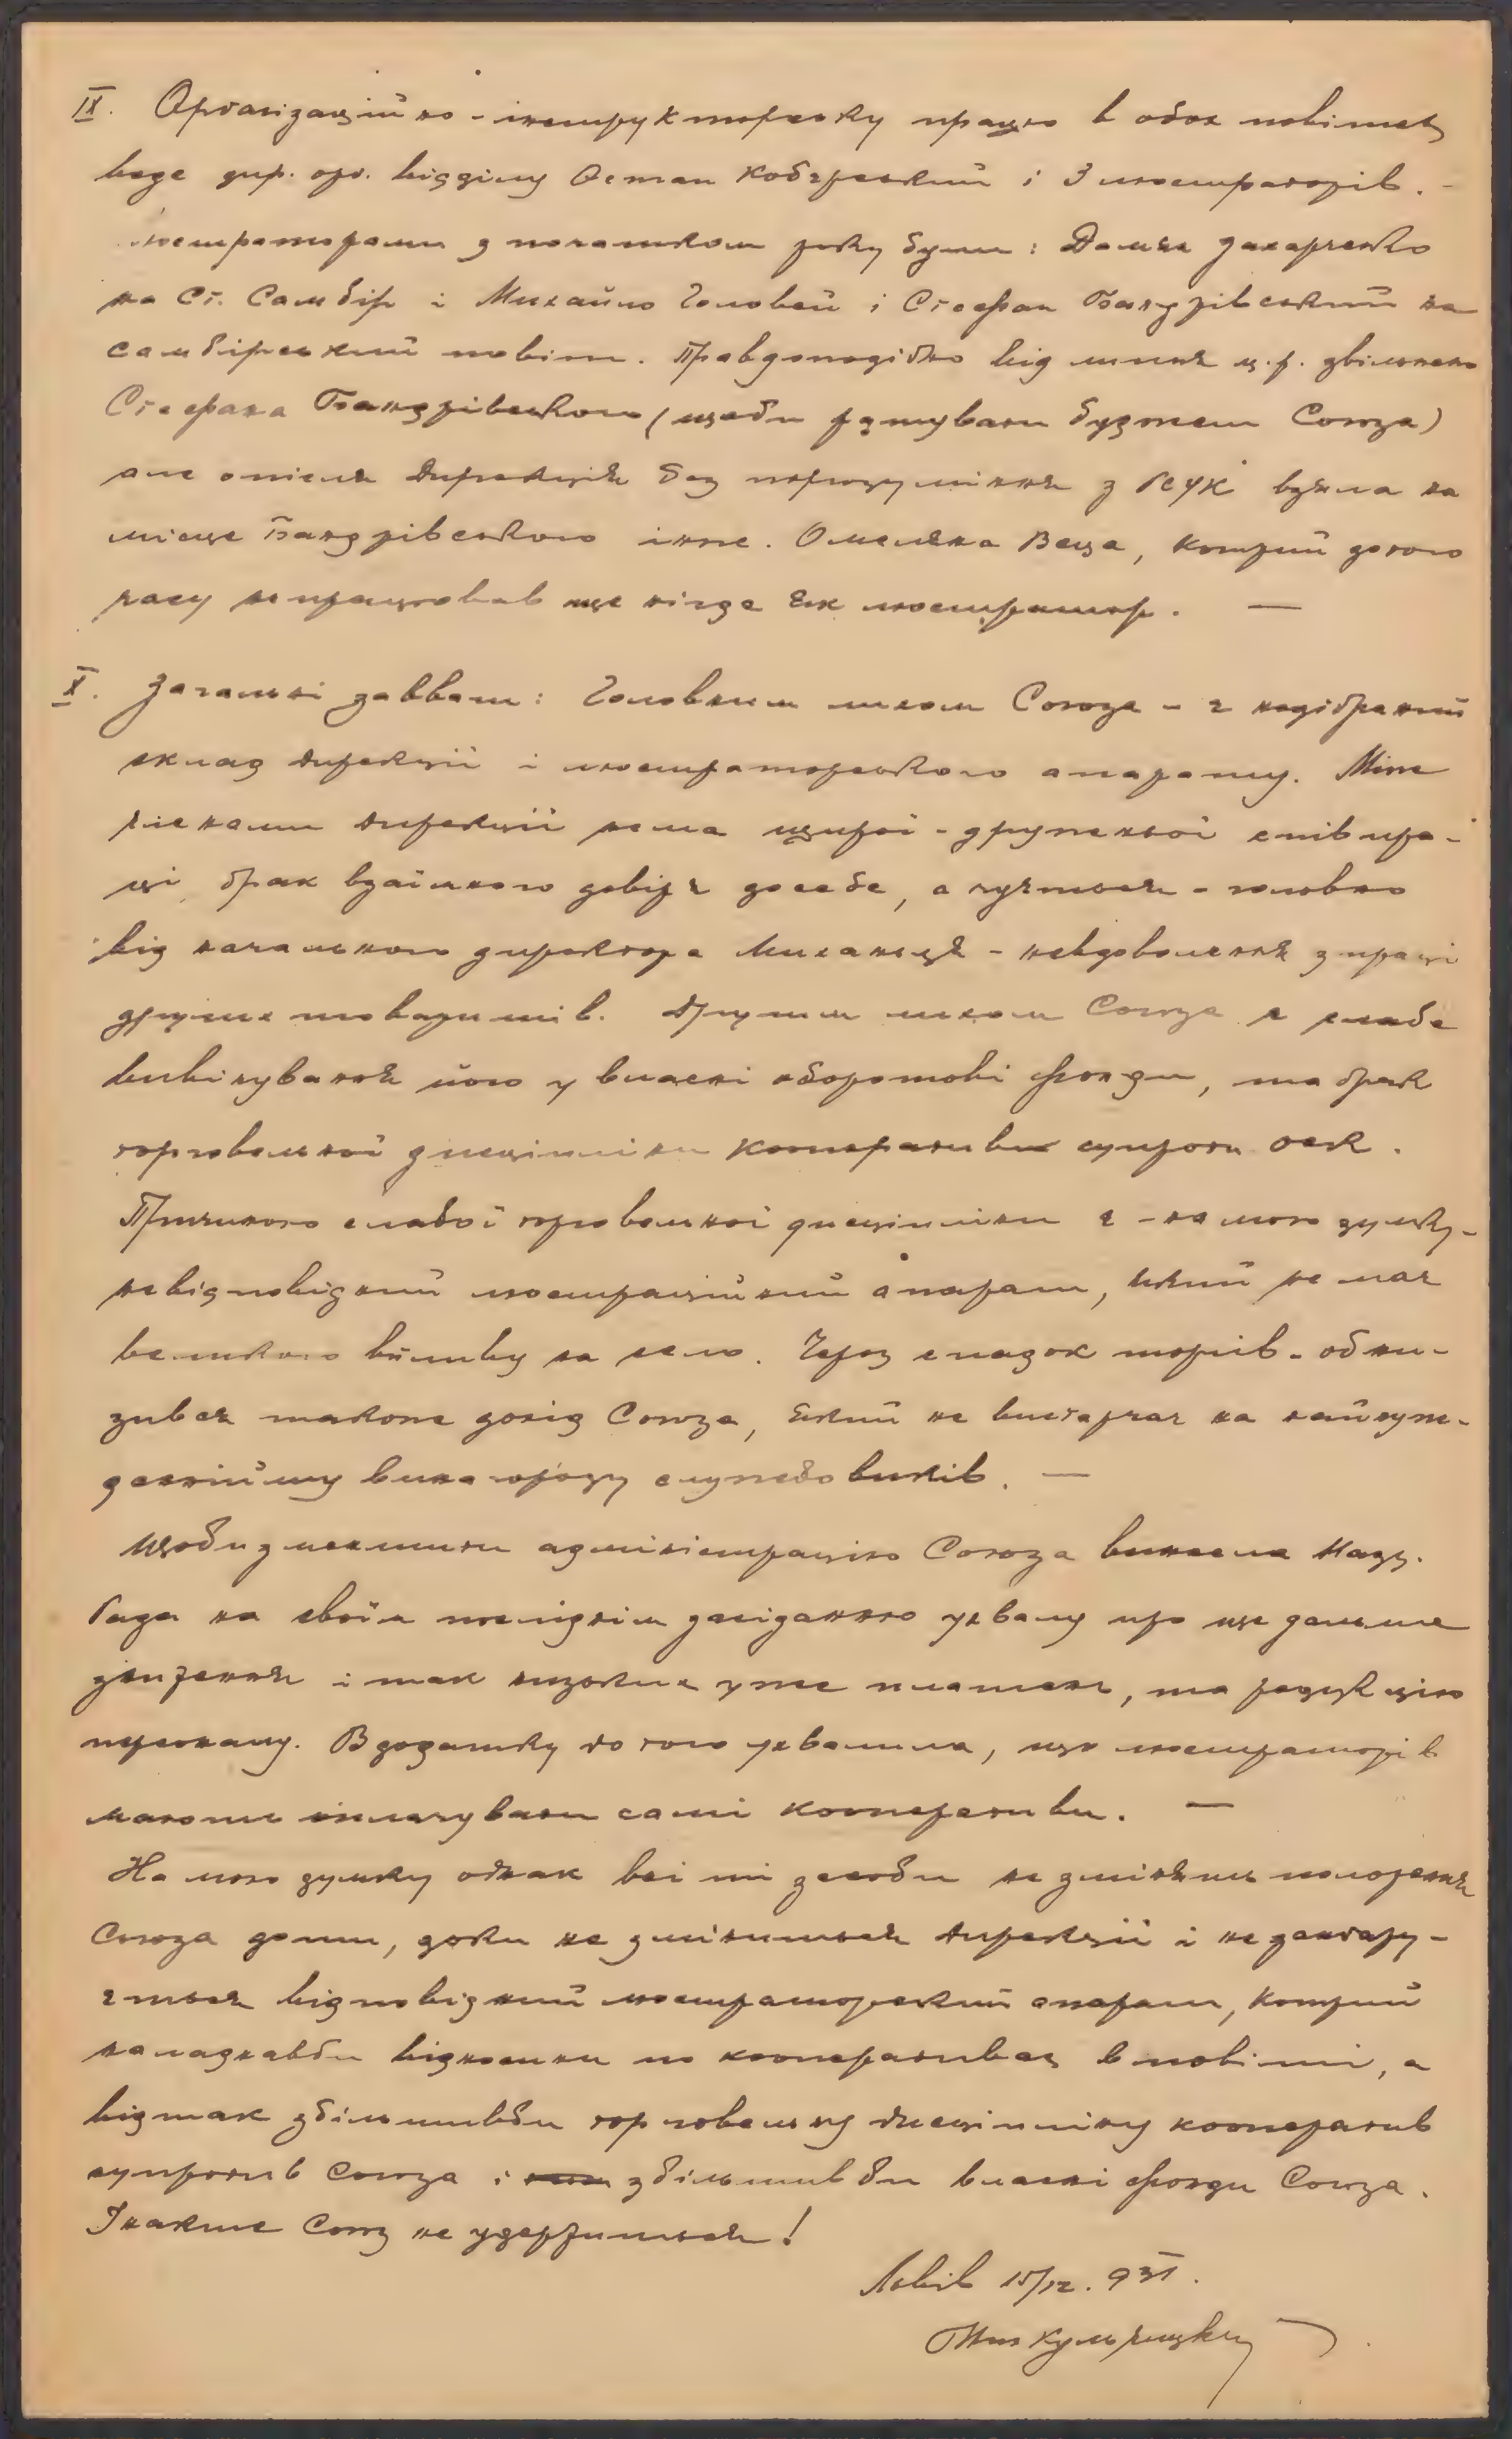 IX. Орґанізаційно-інструкторську працю в обох повітах
веде дир. орг. відділу Остап Кобзрський і 3 люстраторів. -
Люстраторами з початком року були: Домян Захарченко
на Ст. Самбір і Михайло Головей і Стефан Бандрівський на
самбірський повіт. Правдоподібно від липня ц.р. звільнено
Стефана Бандрівського (щоби рятувати буджет Союза)
але опісля дирекція без порозуміння з РСУК взяла на
місце Бандрівського інже. Омеляна Веца, котрий до того
часу не працював ще нігде як люстратор. —
X. Загальні завваги: Головним лихом Союза - є недібраний
склад дирекції і люстраторського апарату. Між
членами дирекції нема щирої-дружньої співпра-
ці, брак взаїмного довіря до себе, а чується - головно
від начального директора Миханця - невдоволення з праці
других товаришів. Другим лихом Союза є слабе
вивінування його у власні оборотові фонди, та брак
торговельної дисципліни кооператив супроти ОСК.
Причиною слабої торговельної дисципліни є - на мою думку -
невідповідний люстраційний апарат, який не має
великого впливу на село. Через спадок торгів - обни-
зився також дохід Союза, який не вистарчає на найнуж-
деннійшу винагороду службовиків. —
Щоби зменшити адміністрацію Союза винесла Надз.
Рада на своїм послїднім засіданню ухвалу про ще дальше
зниження і так низьких уже платень, та редукцію
персоналу. В додатку до того ухвалила, що люстраторів
мають оплачувати самі кооперативи. —
На мою думку однак всі ті засоби не змінять положення
Союза доти, доки не змінится дирекції і не заангажу-
ється відповідний люстраторський апарат, котрий
наладнавби відносини по кооперативах в повіті, а
відтак збільшивби торговельну дисципліну кооператив
супротив Союза і збільшив би власні фонди Союза.
Інакше Союз не удержиться!
Львів 15/12. 931.
Кульчицький